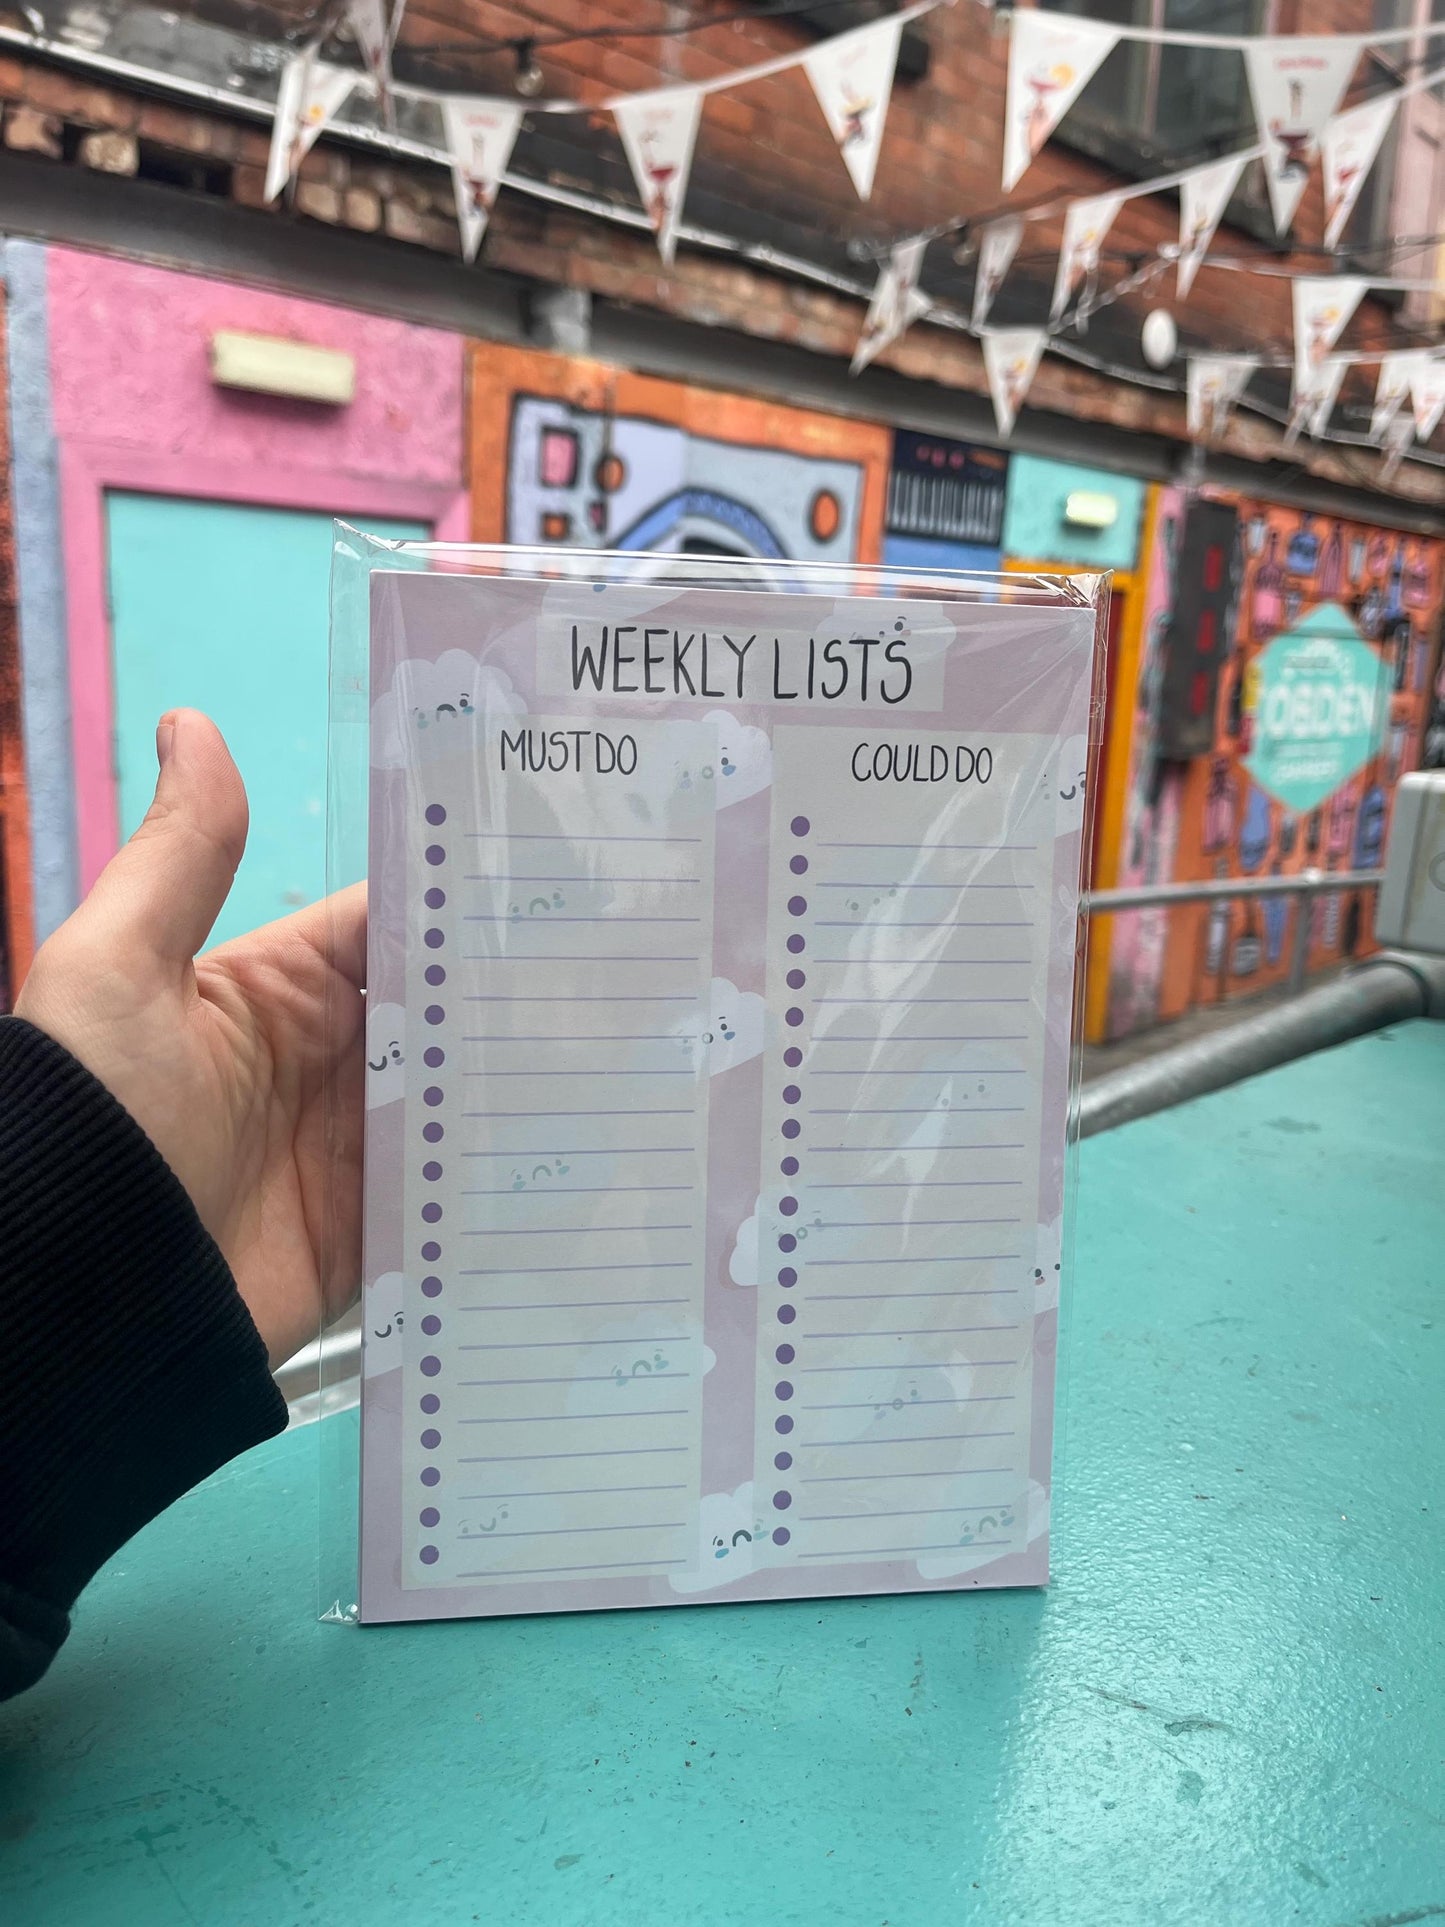 WEEKLY LISTS
MUST DO
COULD DO
COBDEN